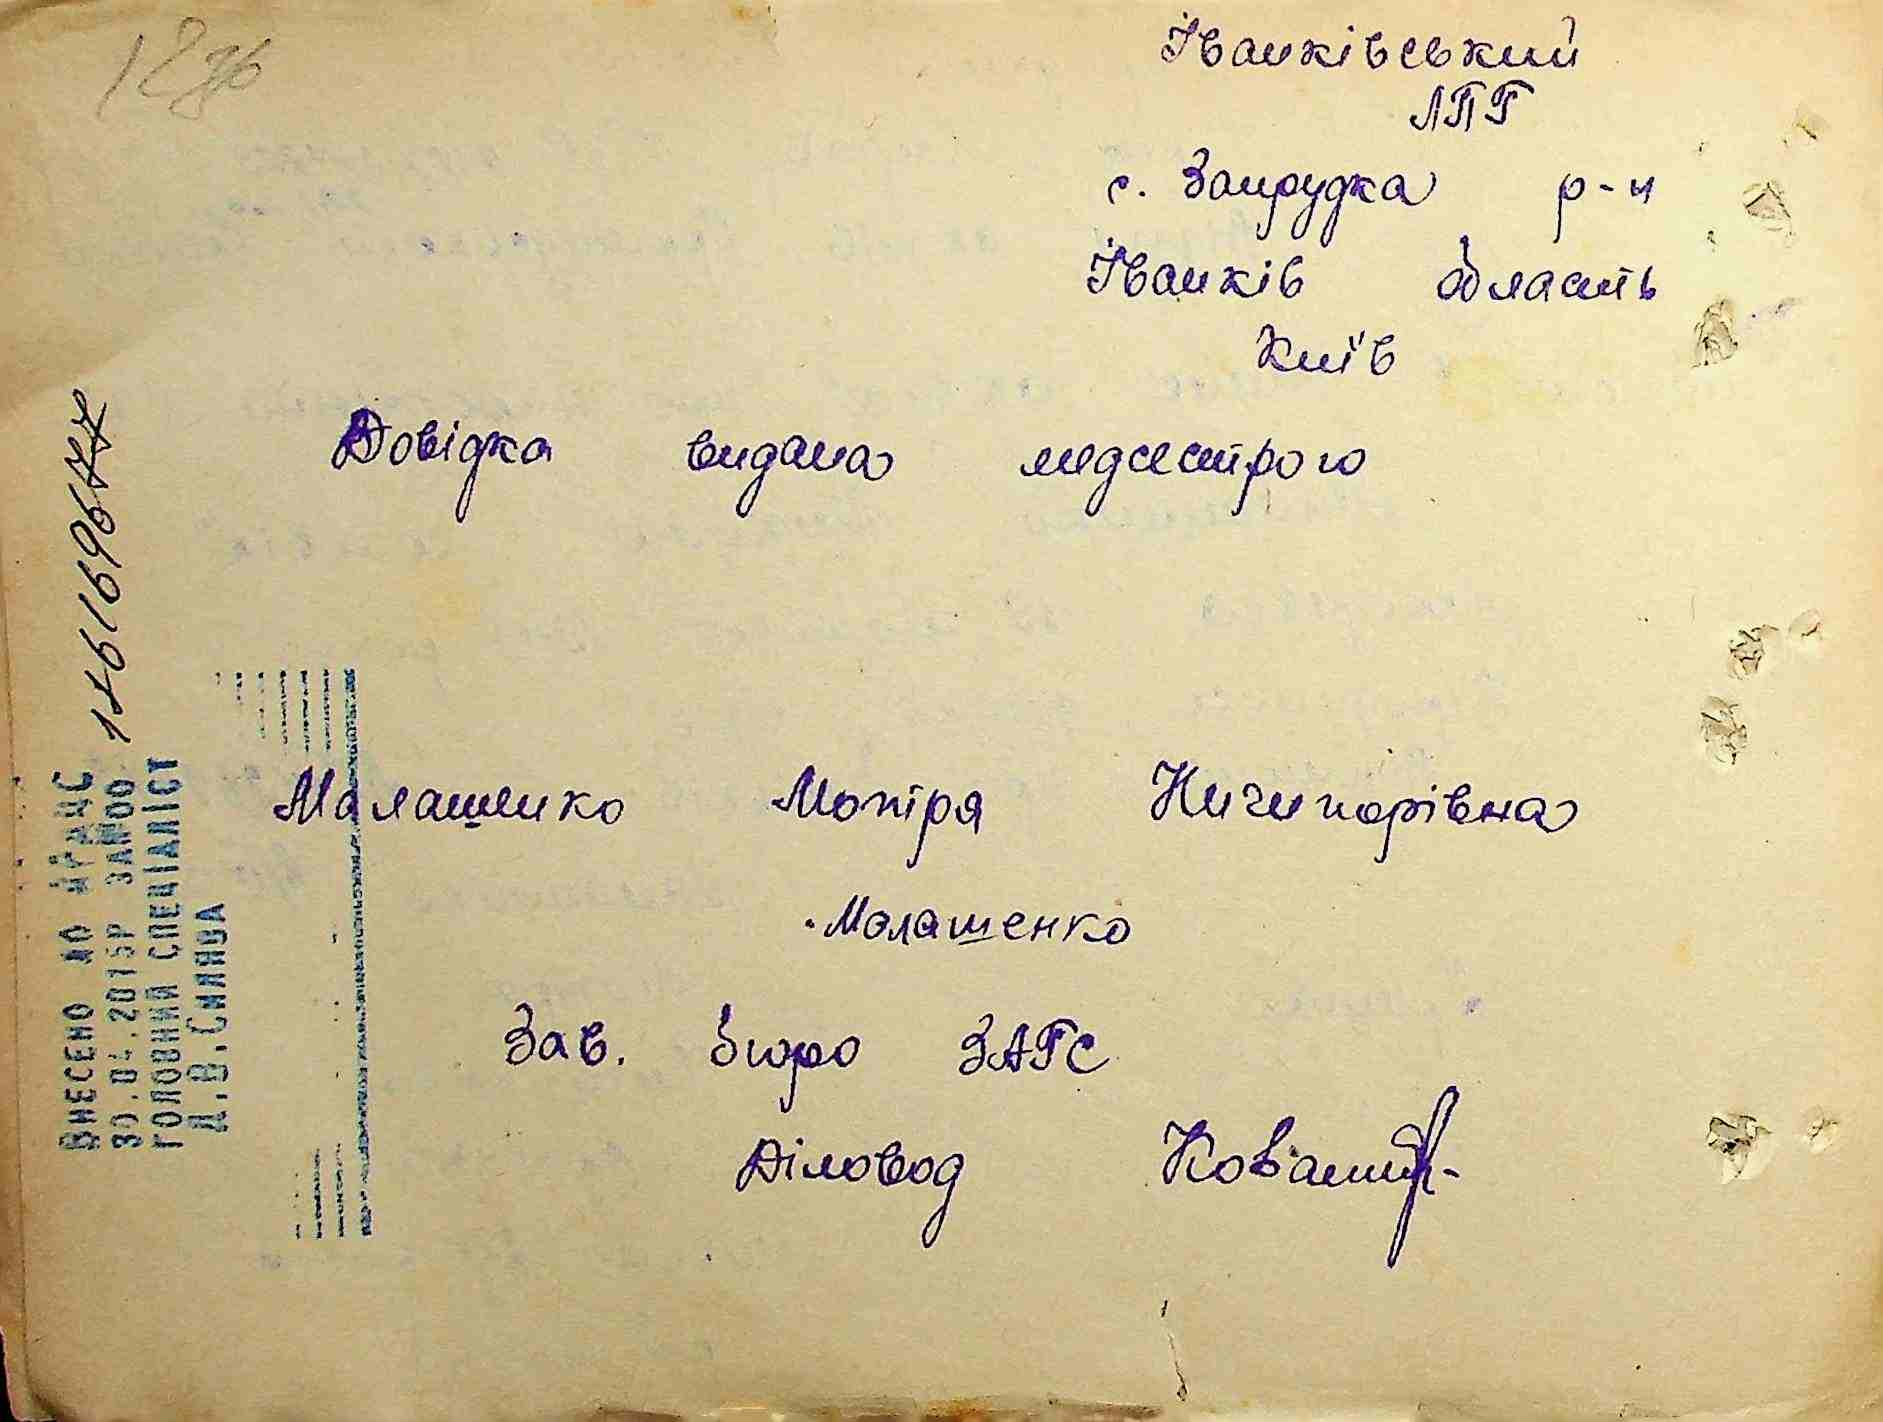 Іванківський
ЛПГ
с. Запрудка р-н
Іванків область
Київ
Довідка видана медсестрою
Малашенко Мотіря Ничипорівна
Малашенко
Зав. бюро ЗАГС
Діловод
Внесено до ДРАЦС
30.04.2015р зайоо
головний спеціаліст
Д.В.Синява